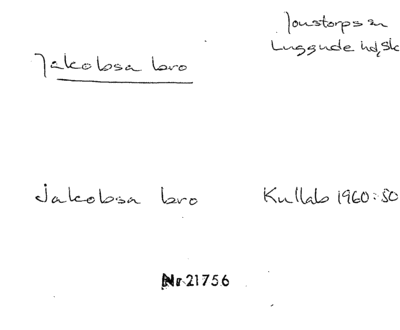 Jakobsa bro
Jonstorps sn
Luggude hd, Sk
Jakobsa bro
Kullab 1960:50
Nr 21756